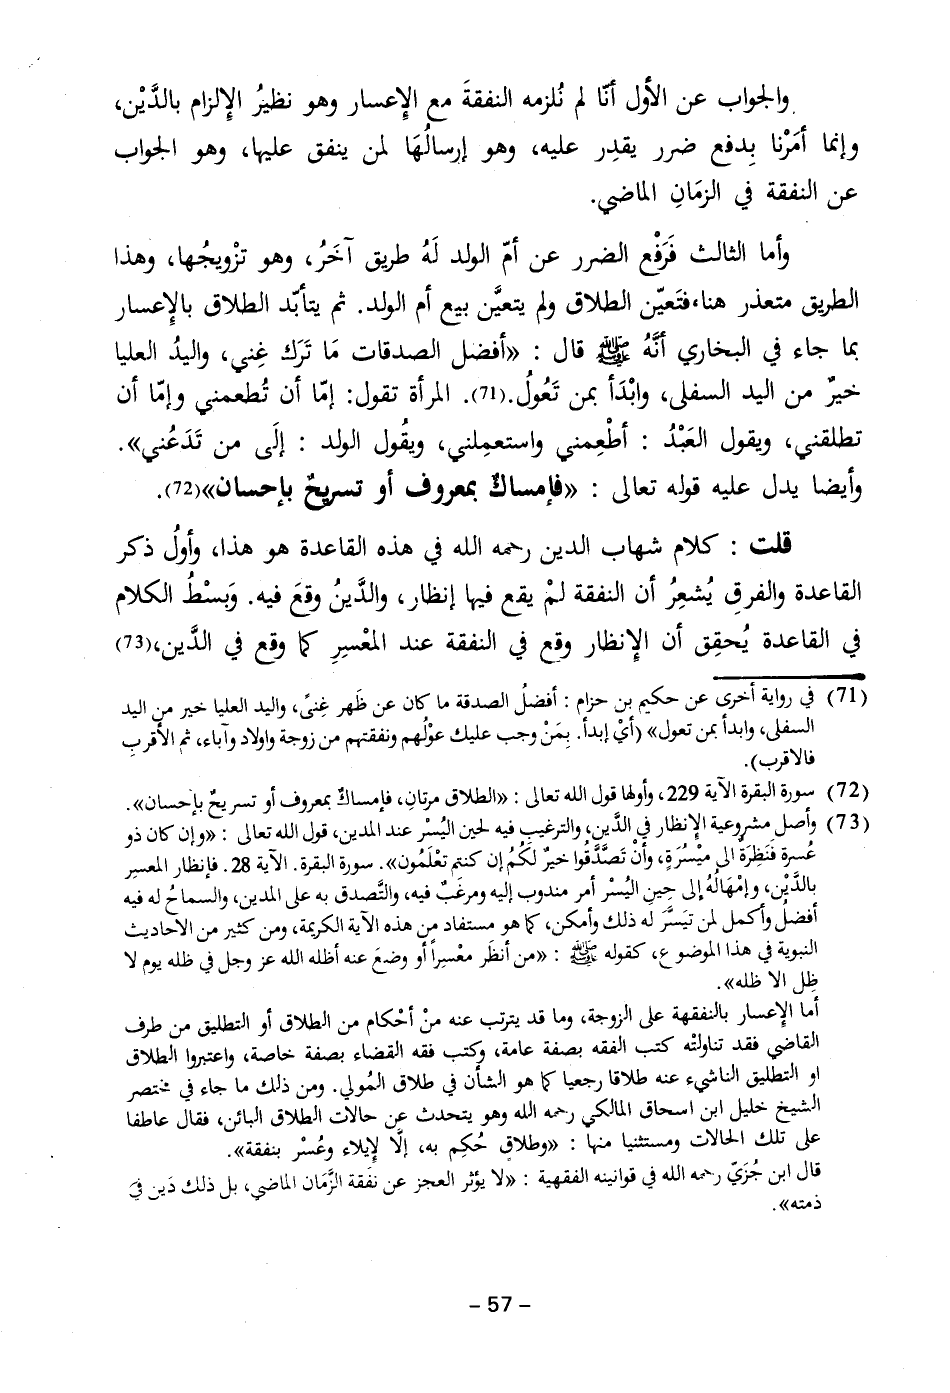 والجواب عن الأول أنّا لم نُلزمه النفقةَ مع الإعسار وهو نظيرُ الإلزام بالدَّيْن،
وإنما أمَرْنا بِدفع ضرر يقدِر عليه، وهو إرسالُهَا لمن ينفق عليها، وهو الجواب
عن النفقة في الزمَانِ الماضي.
وأما الثالث فَرَفْع الضرر عن أمّ الولد لَهُ طريق آخَرُ، وهو تزْويجُها، وهذا
الطريق متعذر هنا، فتَعيّن الطلاق ولم يتعيَّن بيع أم الولد. ثم يتأبّد الطلاق بالإعسار
بما جاء في البخاري أنَّهُ ﷺ قال : «أفضل الصدقات مَا تَرَك غِنى، واليدُ العليا
خيرٌ من اليد السفلى، وابْدَأ بمن تَعُولُ.(71). المرأة تقول: إمّا أن تُطعمني وإمّا أن
تطلقني، ويقول العَبْدُ : أطْعِمني واستعمِلني، ويقُول الولد : إلَى من تَدَعُني».
وأيضا يدل عليه قوله تعالى : «فإمساكٌ بمعروف أو تسريحٌ بإحسان»(72).
قلت : كلام شهاب الدين رحمه الله في هذه القاعدة هو هذا، وأولُ ذكر
القاعدة والفرق يُشعِرُ أن النفقة لمْ يقع فيها إنظار، والدَّينُ وقعَ فيه. وَبسْطُ الكلام
في القاعدة يُحقِق أن الإنظار وقع في النفقة عند المعْسِرِ كما وقع في الدَّين،(73)
(71) في رواية أخرى عن حكيم بن حزام : أفضلُ الصدقة ما كان عن ظَهر غِنىً، واليد العليا خير من اليد
السفلى، وابدأ بمن تعول» (أيْ إبدأ. بِمَنْ وجب عليك عوْلُهم ونفقتهم من زوجة واولاد وآباء، ثم الأقربِ
فالاقرب).
(72) سورة البقرة الآية 229، وأولها قول الله تعالى : «الطلاق مرتانِ، فإمساكٌ بمعروف أو تسريحٌ بإحسان».
(73) وأصل مشروعية الإنظار في الدَّين، والترغيب فيه لحين اليُسْر عند المدين، قول الله تعالى : «وإن كان ذو
عُسرة فنَظِرَةٌ الى ميْسُرَةٍ، وأنْ تَصَّدَّقُوا خيرٌ لَكُمُ إن كنتم تعْلَمُون». سورة البقرة. الآية 28. فإنظار المعسر
بالدَّيْن، وإمْهَالُهُ إلى حِينِ اليُسْر أمر مندوب إليه ومرغَبٌ فيه، والتَّصدق به على المدين، والسماحُ له فيه
أفضلُ وأكمل لمن تيَسَّرَ له ذلك وأمكن، كما هو مستفاد من هذه الآية الكريمة، ومن كثير من الاحاديث
النبوية في هذا الموضوع، كقوله ﷺ : «من أنظَر معْسِراً أو وضعَ عنه أظله الله عز وجل في ظله يوم لا
ظِل الا ظله».
أما الإعسار بالنفقهة على الزوجة، وما قد يترتب عنه منْ أحْكام من الطلاق أو التطليق من طرف
القاضي فقد تناولتْه كتب الفقه بصفة عامة، وكتب فقه القضاء بصفة خاصة، واعتبروا الطلاق
او التطليق الناشيء عنه طلاقا رجعيا كما هو الشأن في طلاق المُولي. ومن ذلك ما جاء في مختصر
الشيخ خليل ابن اسحاق المالكي رحمه الله وهو يتحدث عن حالات الطلاق البائن، فقال عاطفا
على تلك الحالات ومستثنيا منها : «وطلاقٍ حُكِم به، إلَّا لإيلاء وعُسْر بنفقة».
قال ابن جُزَيّ رحمه الله في قوانينه الفقهية : «لا يؤثر العجز عن نَفقة الزَّمَان الماضي، بل ذلك دَين في
ذمته».
– 57 –